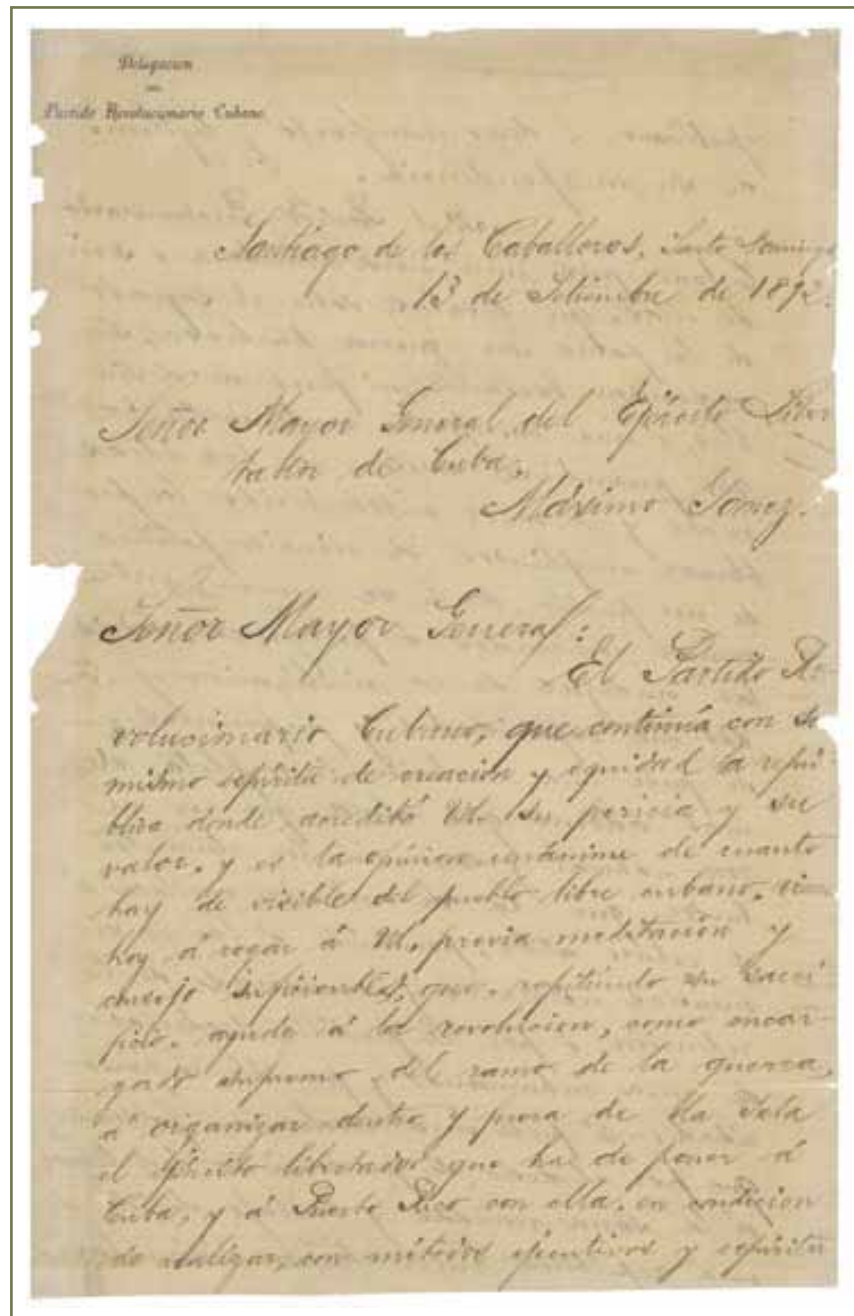 Delegacion
DEL
Partido Revolucionario Cubano
Santiago de los Caballeros, Santo Domingo
13 de Setiembre de 1892.
Señor Mayor General del Ejército Liber
tador de Cuba,
Máximo Gomez.
Señor Mayor General:
El Partido Re-
volucionario Cubano, que continúa con su
mismo espíritu de creación y equidad la repú-
blica donde acreditó Vd. su pericia y su
valor, y es la opinión unánime de cuanto
hay de visible del pueblo libre cubano, viene
hoy á rogar á Vd., previa meditación y
consejo suficientes, que, repitiendo su sacri
ficio, ayude á la revolucion, como encar-
gado supremo del ramo de la guerra,
á organizar dentro y fuera de la Isla
el ejército libertador que ha de poner á
Cuba, y á Puerto Rico con ella, en condicion
de realizar, con métodos ejecutivos y espíritu